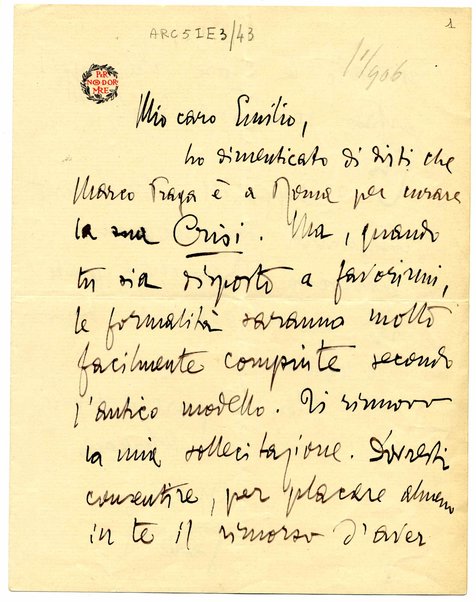 ARC5IE3/43
1
1/906
PER
NON DOR
MIRE
Mio caro Emilio,
ho dimenticato di dirti che
Marco Praga è a Roma per curare
la sua Crisi. Ma, quando
tu sia disposto a favorirmi,
le formalità saranno molto
facilmente compiute secondo
l'antico modello. Ti rinnovo
la mia sollecitazione. Dovresti
consentire, per placare almeno
in te il rimorso d'aver